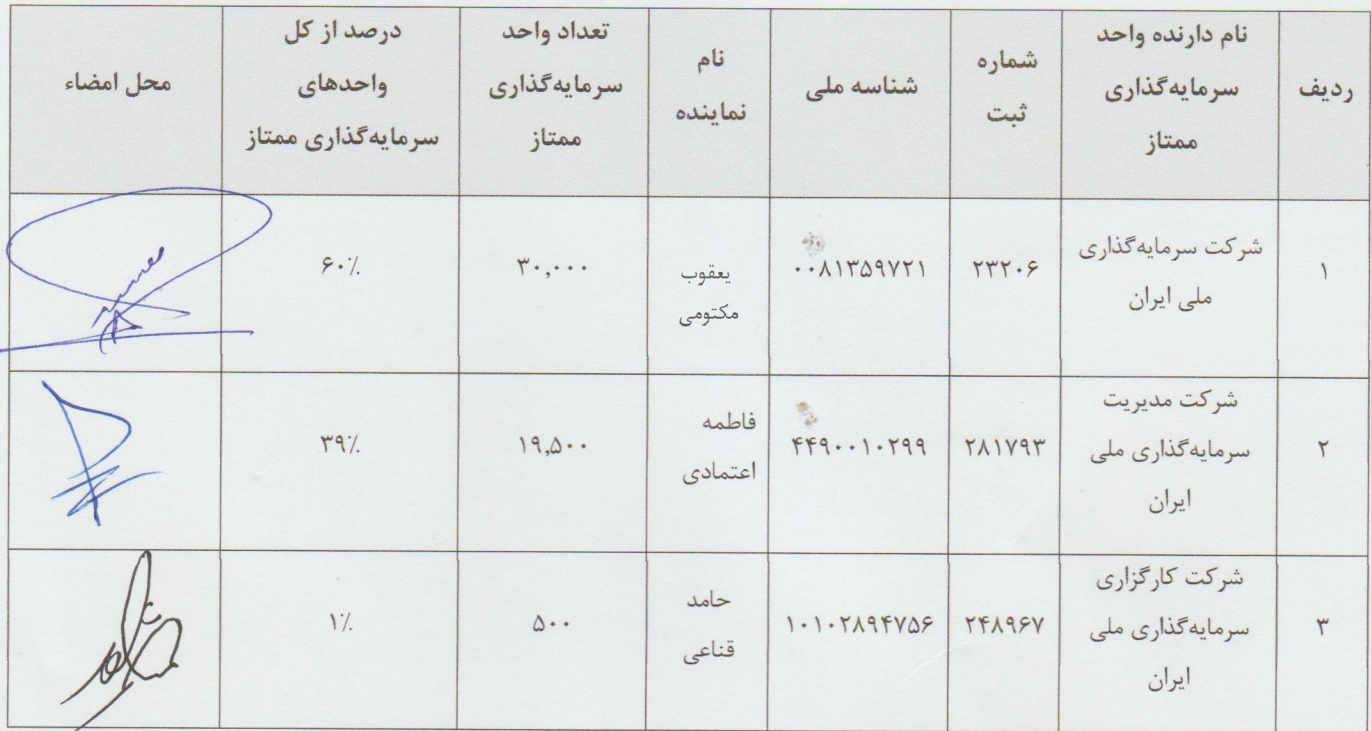 ردیف
نام دارنده واحد
سرمایه‌گذاری
ممتاز
شماره
ثبت
شناسه ملی
نام
نماینده
تعداد واحد
سرمایه‌گذاری
ممتاز
درصد از کل
واحدهای
سرمایه‌گذاری ممتاز
محل امضاء
۱
شرکت سرمایه‌گذاری
ملی ایران
۲۳۲۰۶
۰۰۸۱۳۵۹۷۲۱
یعقوب
مکتومی
۳۰,۰۰۰
۶۰٪
۲
شرکت مدیریت
سرمایه‌گذاری ملی
ایران
۲۸۱۷۹۳
۴۴۹۰۰۱۰۲۹۹
فاطمه
اعتمادی
۱۹,۵۰۰
۳۹٪
۳
شرکت کارگزاری
سرمایه‌گذاری ملی
ایران
۲۴۸۹۶۷
۱۰۱۰۲۸۹۴۷۵۶
حامد
قناعی
۵۰۰
۱٪